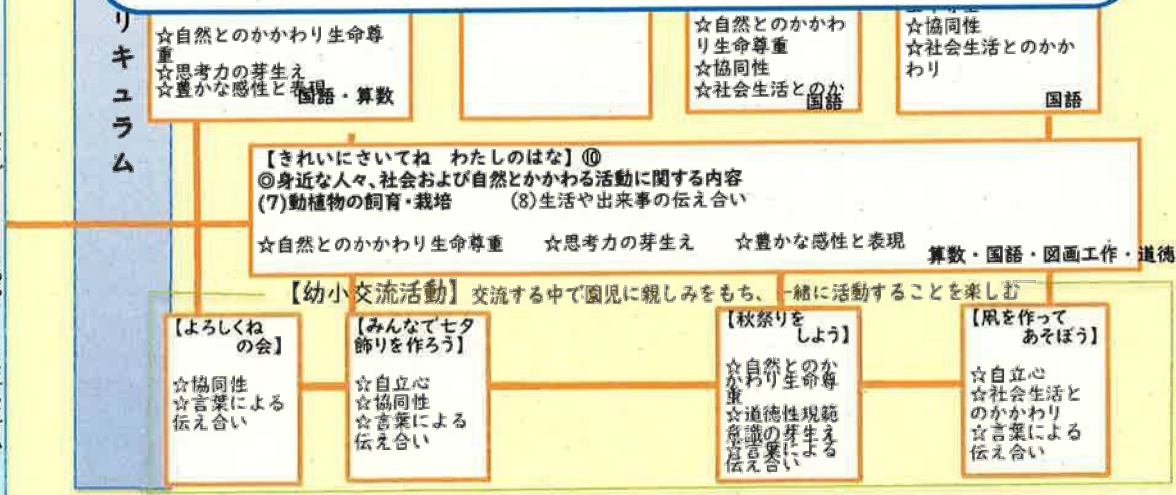 リキュラム
☆自然とのかかわり生命尊
重
☆思考力の芽生え
☆豊かな感性と表現
国語・算数
☆自然とのかかわ
り生命尊重
☆協同性
☆社会生活とのか
国語
☆協同性
☆社会生活とのかか
わり
国語
【きれいにさいてね　わたしのはな】⑩
◎身近な人々、社会および自然とかかわる活動に関する内容
(7)動植物の飼育・栽培　(8)生活や出来事の伝え合い
☆自然とのかかわり生命尊重　☆思考力の芽生え　☆豊かな感性と表現
算数・国語・図画工作・道徳
【幼小交流活動】交流する中で園児に親しみをもち、一緒に活動することを楽しむ
【よろしくね
の会】
☆協同性
☆言葉による
伝え合い
【みんなで七夕
飾りを作ろう】
☆自立心
☆協同性
☆言葉による
伝え合い
【秋祭りを
しよう】
☆自然とのか
かわり生命尊
重
☆道徳性規範
意識の芽生え
☆言葉による
伝え合い
【凧を作って
あそぼう】
☆自立心
☆社会生活と
のかかわり
☆言葉による
伝え合い